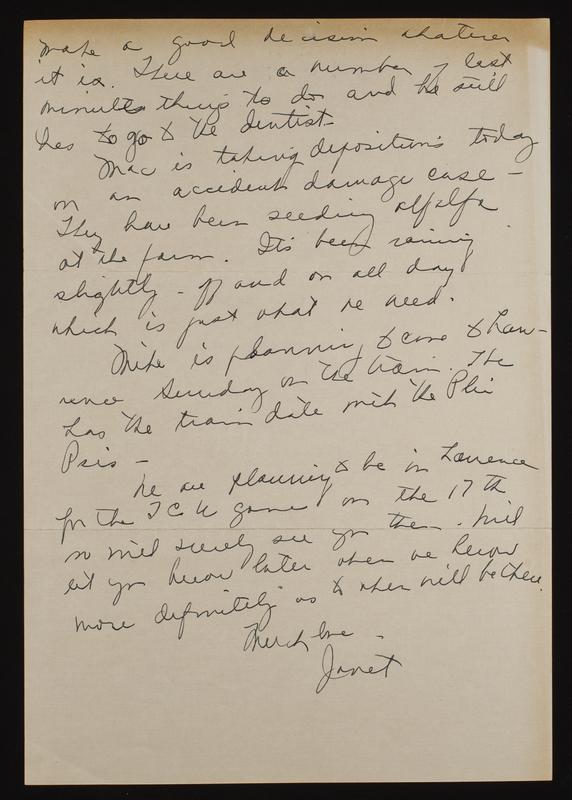 make a good decision whatever
it is. There are a number of last
minute things to do and he still
has to go to the dentist.
Mac is taking depositions today
on an accident damage case -
They have been seeding alfalfa
at the farm. It's been raining
slightly - off and on all day
which is just what we need.
Mike is planning to come to Law-
rence Sunday on the train. He
has the train date with the Phi
Psis -
We are planning to be in Lawrence
for the T C U game on the 17th
so will surely see you then. Will
let you know later when we know
more definitely as to when will be there.
Much love -
Janet